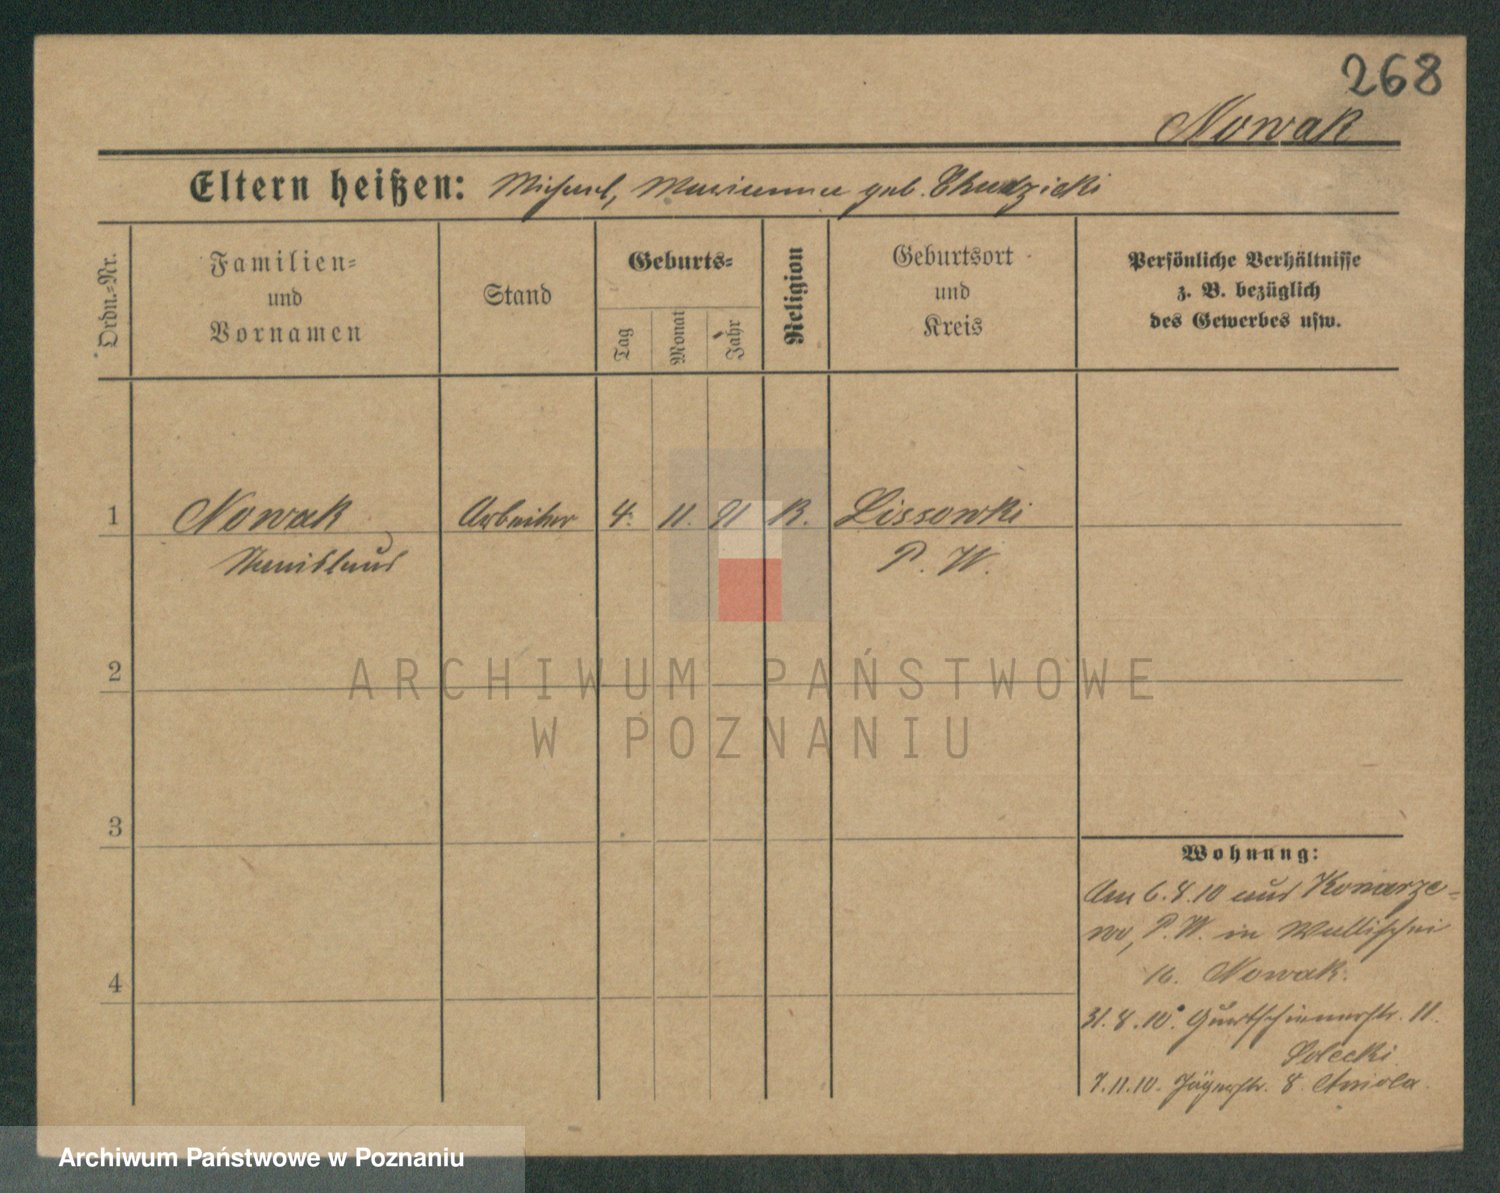 268
Nowak
Eltern heißen: Michael, Marianna geb. Chudzicki
Ordn.-Nr.
Familien-
und
Vornamen
Stand
Geburts-
Tag
Monat
Jahr
Religion
Geburtsort
und
Kreis
Persönliche Verhältnisse
z. B. bezüglich
des Gewerbes usw.
1 Nowak Arbeiter 4. 11. 91 K. Lissowki
Stanislaus P. W.
2
3
4
Wohnung:
Am 6.8.10 aus Konarze-
wo, P. W. in Wallischei
16. Nowak.
31.8.10. Gurtschinerstr. 11.
Solecki
7.11.10. Jägerstr. 8. Aniola
ARCHIWUM PAŃSTWOWE
W POZNANIU
Archiwum Państwowe w Poznaniu